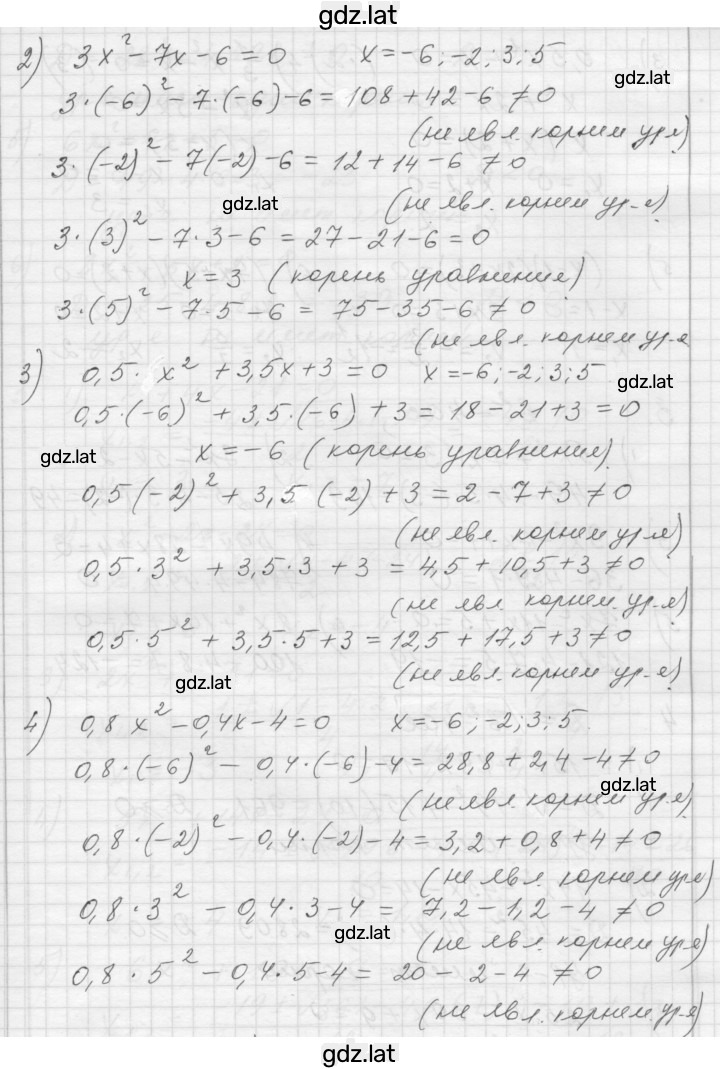 gdz.lat
2) 3x² - 7x - 6 = 0 x = -6; -2; 3; 5
gdz.lat
3·(-6)² - 7·(-6) - 6 = 108 + 42 - 6 ≠ 0
(не явл. корнем ур-я)
3·(-2)² - 7(-2) - 6 = 12 + 14 - 6 ≠ 0
gdz.lat
(не явл. корнем ур-я)
3·(3)² - 7·3 - 6 = 27 - 21 - 6 = 0
x = 3 (корень уравнения)
3·(5)² - 7·5 - 6 = 75 - 35 - 6 ≠ 0
(не явл. корнем ур-я
3) 0,5· x² + 3,5x + 3 = 0 x = -6; -2; 3; 5
gdz.lat
0,5·(-6)² + 3,5·(-6) + 3 = 18 - 21 + 3 = 0
gdz.lat
x = -6 (корень уравнения)
0,5(-2)² + 3,5(-2) + 3 = 2 - 7 + 3 ≠ 0
(не явл. корнем ур-я)
0,5·3² + 3,5·3 + 3 = 4,5 + 10,5 + 3 ≠ 0
(не явл. корнем. ур-я)
0,5·5² + 3,5·5 + 3 = 12,5 + 17,5 + 3 ≠ 0
gdz.lat
(не явл. корнем ур-я)
4) 0,8x² - 0,4x - 4 = 0 x = -6; -2; 3; 5.
0,8·(-6)² - 0,4·(-6) - 4 = 28,8 + 2,4 - 4 ≠ 0
gdz.lat
(не явл. корнем ур-я)
0,8·(-2)² - 0,4·(-2) - 4 = 3,2 + 0,8 + 4 ≠ 0
(не явл. корнем ур-я)
0,8·3² - 0,4·3 - 4 = 7,2 - 1,2 - 4 ≠ 0
gdz.lat
(не явл. корнем ур-я)
0,8·5² - 0,4·5 - 4 = 20 - 2 - 4 ≠ 0
gdz.lat
(не явл. корнем. ур-я)
gdz.lat